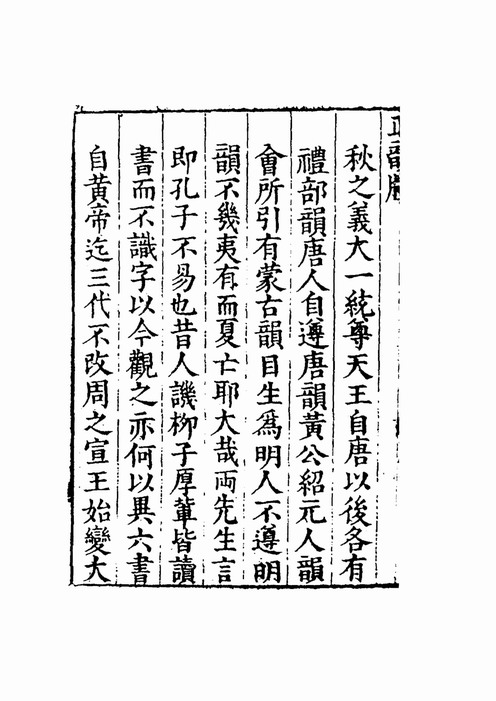 秋之義大一統尊天王自唐以後各有
禮部韻唐人自遵唐韻黃公紹元人韻
會所引有蒙古韻目生爲明人不遵明
韻不幾夷有而夏亡耶大哉両先生言
即孔子不易也昔人譏柳子厚軰皆讀
書而不識字以今觀之亦何以異六書
自黃帝迄三代不改周之宣王始變大